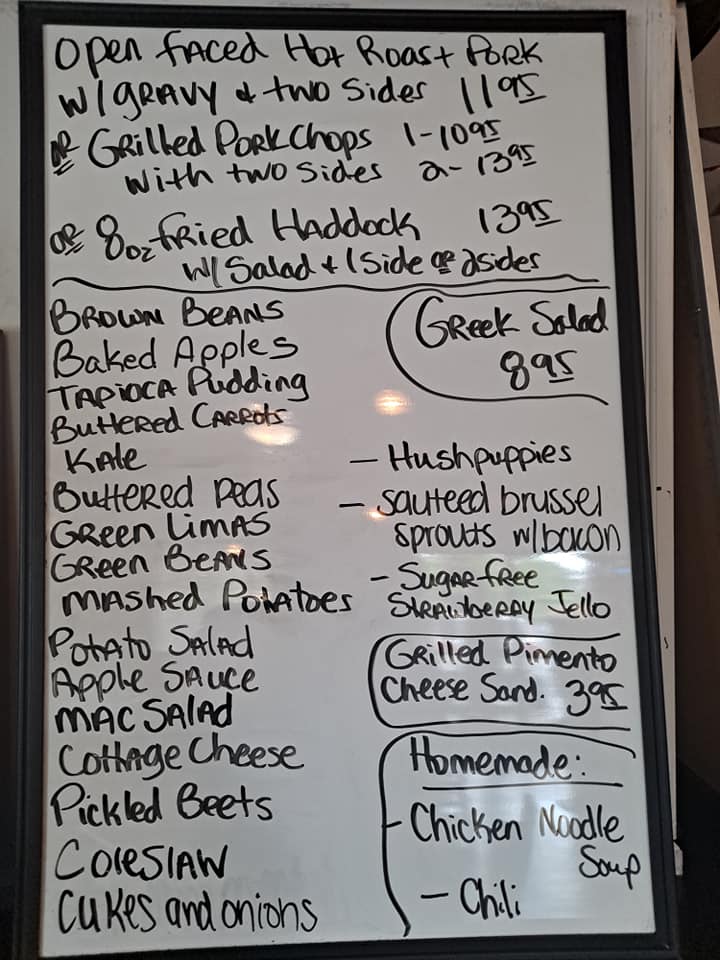 Open faced Hot Roast Pork
w/gravy & two Sides 11 95
or Grilled Pork Chops 1-10 95
with two sides 2- 13 95
or 8oz fried Haddock 13 95
w/ Salad + 1 Side or 2 sides
Brown Beans
Baked Apples
Tapioca Pudding
Buttered Carrots
Kale
Buttered Peas
Green Limas
Green Beans
Mashed Potatoes
Potato Salad
Apple Sauce
Mac Salad
Cottage Cheese
Pickled Beets
Coleslaw
Cukes and onions
Greek Salad
8 95
- Hushpuppies
- sauteed brussel
sprouts w/bacon
- Sugar free
Strawberry Jello
Grilled Pimento
Cheese Sand. 3 95
Homemade:
- Chicken Noodle
Soup
- Chili